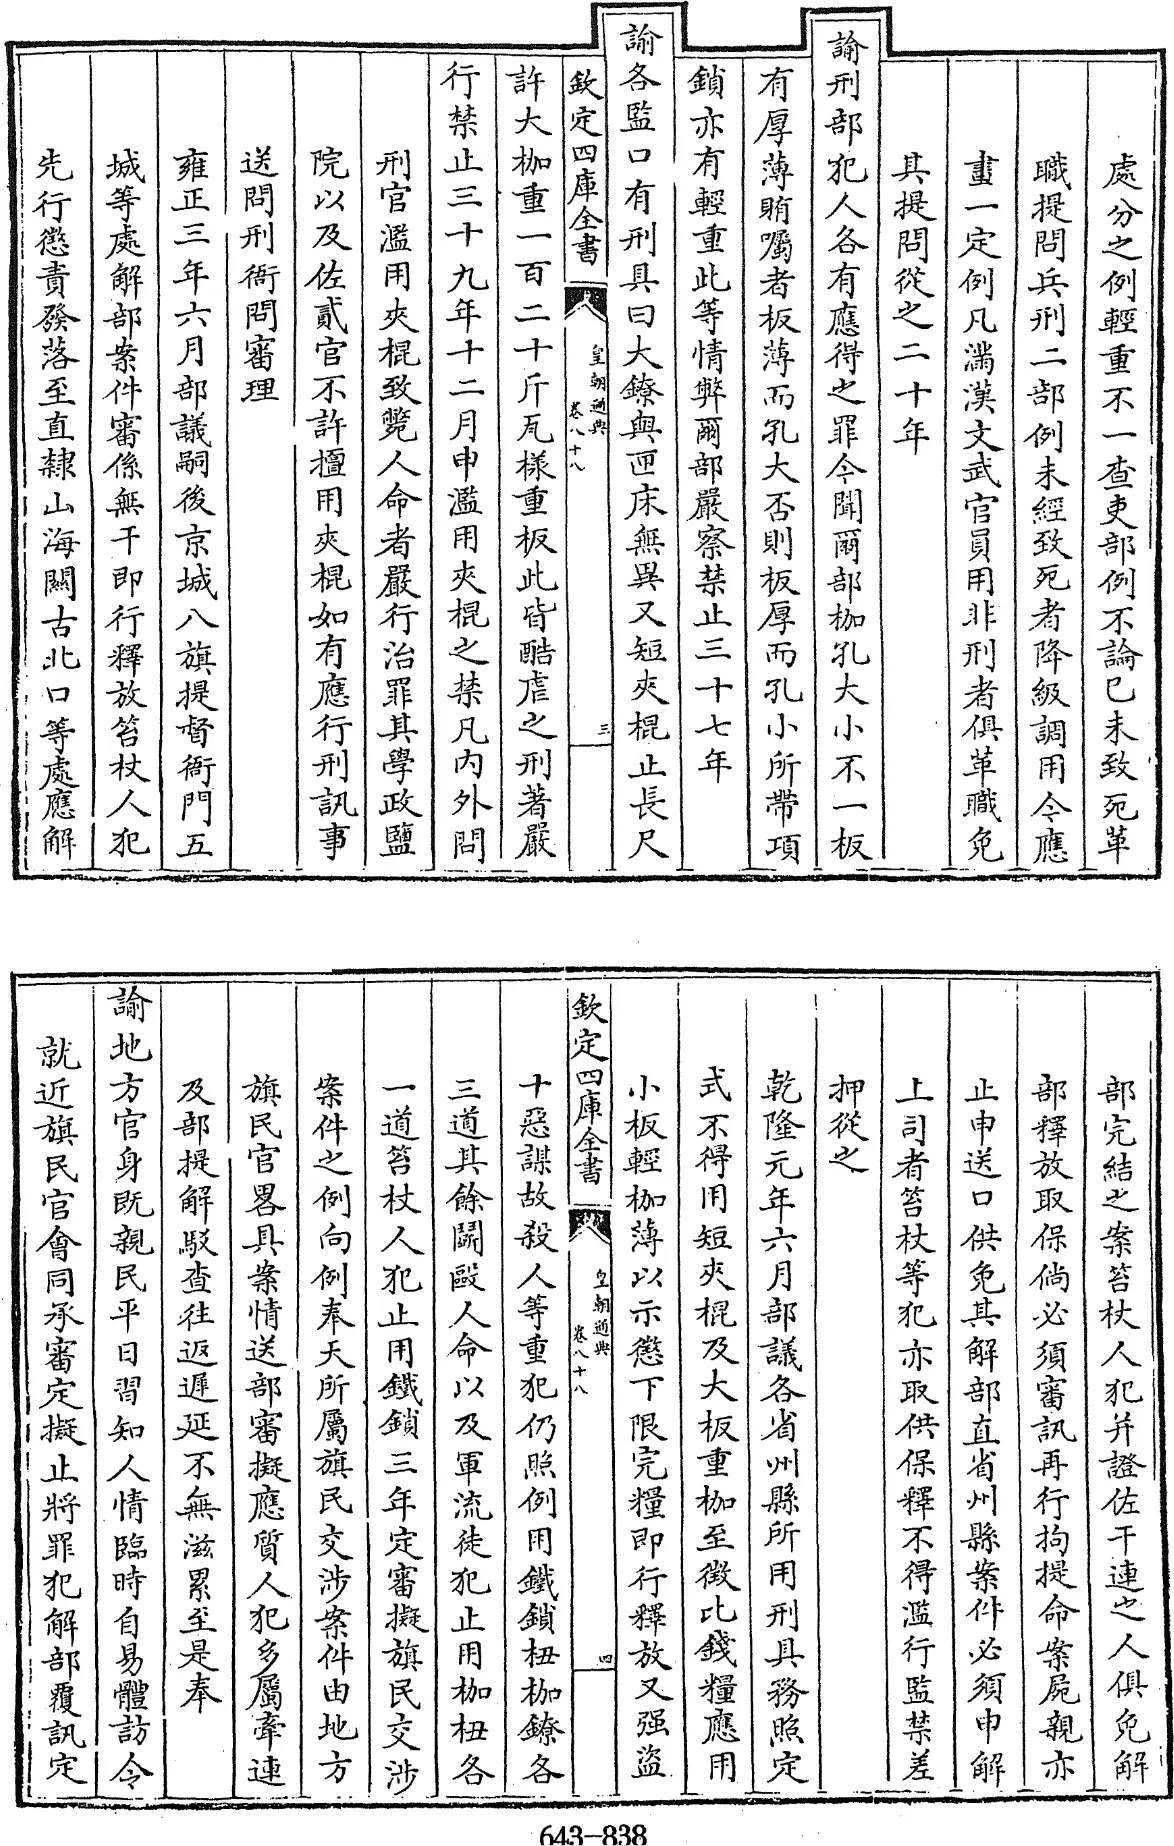 處分之例輕重不一查吏部例不論已未致死革
職提問兵刑二部例未經致死者降級調用令應
畫一定例凡滿漢文武官員用非刑者俱革職免
其提問從之二十年
諭刑部犯人各有應得之罪今聞爾部枷孔大小不一板
有厚薄賄囑者板薄而孔大否則板厚而孔小所帶項
鎖亦有輕重此等情弊爾部嚴察禁止三十七年
諭各監口有刑具曰大鐐與匣床無異又短夾棍止長尺
欽定四庫全書
皇朝通典
卷八十八
三
許大枷重一百二十斤瓦樣重板此皆酷虐之刑著嚴
行禁止三十九年十二月申濫用夾棍之禁凡內外問
刑官濫用夾棍致斃人命者嚴行治罪其學政鹽
院以及佐貳官不許擅用夾棍如有應行刑訊事
送問刑衙問審理
雍正三年六月部議嗣後京城八旗提督衙門五
城等處解部案件審係無干即行釋放笞杖人犯
先行懲責發落至直隸山海關古北口等處應解
部完結之案笞杖人犯并證佐干連之人俱免解
部釋放取保倘必須審訊再行拘提命案屍親亦
止申送口供免其解部直省州縣案件必須申解
上司者笞杖等犯亦取供保釋不得濫行監禁差
押從之
乾隆元年六月部議各省州縣所用刑具務照定
式不得用短夾棍及大板重枷至徵比錢糧應用
小板輕枷薄以示懲下限完糧即行釋放又强盜
欽定四庫全書
皇朝通典
卷八十八
四
十惡謀故殺人等重犯仍照例用鐵鎖杻枷鐐各
三道其餘鬭毆人命以及軍流徒犯止用枷杻各
一道笞杖人犯止用鐵鎖三年定審擬旗民交涉
案件之例向例奉天所屬旗民交涉案件由地方
旗民官畧具案情送部審擬應質人犯多屬牽連
及部提解駁查往返遲延不無滋累至是奉
諭地方官身既親民平日習知人情臨時自易體訪令
就近旗民官會同承審定擬止將罪犯解部覆訊定
643-838